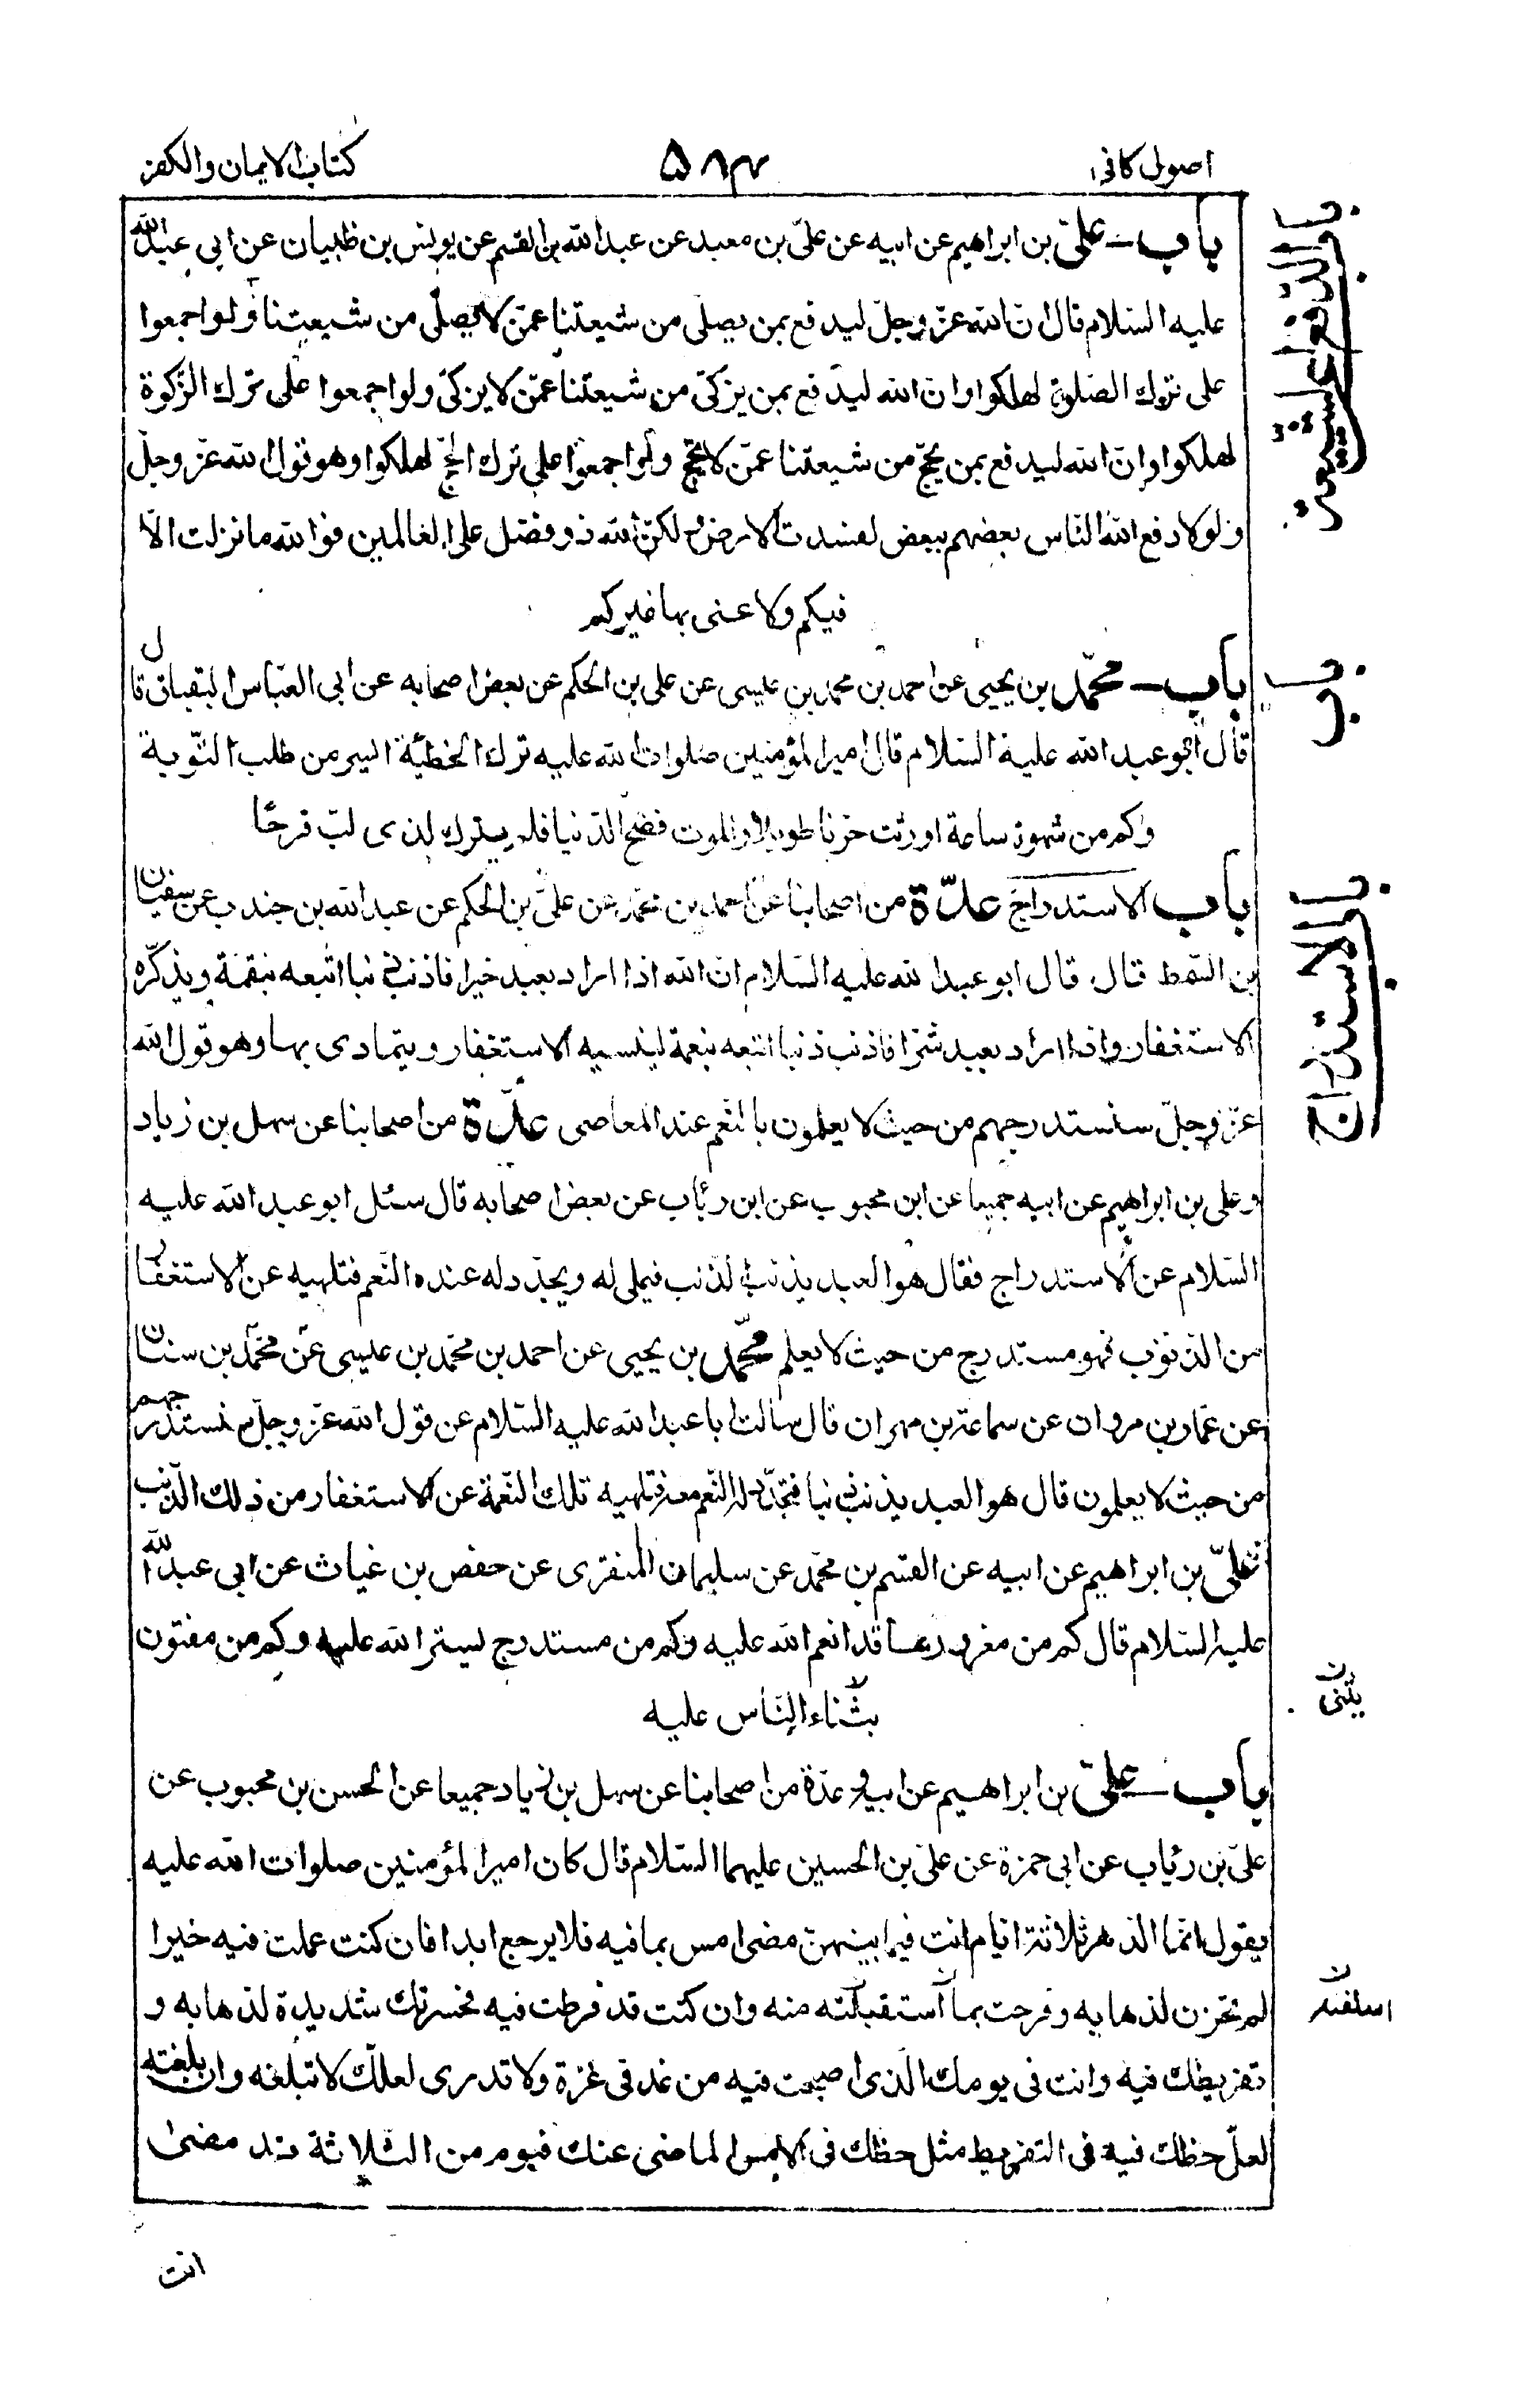 اصول كافى
۵۸۳
كتاب الايمان والكفر
باب ان الله يدفع بالعامل عن غير العامل
باب ـ علىّ بن ابراهيم عن ابيه عن علىّ بن معبد عن عبد الله بن القسم عن يونس بن ظبيان عن ابى عبد الله
عليه السّلام قال انّ الله عزّ وجلّ ليدفع بمن يصلّى من شيعتنا عمّن لا يصلّى من شيعتنا ولو اجمعوا
على ترك الصّلوة لهلكوا وانّ الله ليدفع بمن يزكّى من شيعتنا عمّن لا يزكّى ولو اجمعوا على ترك الزّكوة
لهلكوا وانّ الله ليدفع بمن يحجّ من شيعتنا عمّن لا يحجّ ولو اجمعوا على ترك الحجّ لهلكوا وهو قول الله عزّ وجلّ
ولولا دفع الله النّاس بعضهم ببعض لفسدت الارض ولكنّ الله ذو فضل على العالمين فو الله ما نزلت الّا
فيكم ولا عنى بها غيركم
باب ـ محمّد بن يحيى عن احمد بن محمد بن عيسى عن على بن الحكم عن بعض اصحابه عن ابى العبّاس البقباق قال
قال ابو عبد الله عليه السّلام قال امير المؤمنين صلوات الله عليه ترك الخطيئة ايسر من طلب التّوبة
وكم من شهوة ساعة اورثت حزنا طويلا والموت فضح الدّنيا فلم يترك لذى لبّ فرحًا
باب الاستدراج
باب الاستدراج عدّة من اصحابنا عن احمد بن محمّد عن علىّ بن الحكم عن عبد الله بن جندب عن سفيان
بن السّمط قال قال ابو عبد الله عليه السّلام انّ الله اذا اراد بعبد خيرا فاذنب ذنبا اتبعه بنقمة ويذكّره
الاستغفار واذا اراد بعبد شرّا فاذنب ذنبا اتبعه بنعمة لينسيه الاستغفار ويتمادى بها وهو قول الله
عزّ وجلّ سنستدرجهم من حيث لا يعلمون بالنّعم عند المعاصى عدّة من اصحابنا عن سهل بن زياد
وعلى بن ابراهيم عن ابيه جميعا عن ابن محبوب عن ابن رئاب عن بعض اصحابه قال سئل ابو عبد الله عليه
السّلام عن الاستدراج فقال هو العبد يذنب الذّنب فيملى له ويجدّد له عنده النّعم فتلهيه عن الاستغفار
من الذّنوب فهو مستدرج من حيث لا يعلم محمّد بن يحيى عن احمد بن محمّد بن عيسى عن محمّد بن سنان
عن عمّار بن مروان عن سماعة بن مهران قال سالت ابا عبد الله عليه السّلام عن قول الله عزّ وجلّ سنستدرجهم
من حيث لا يعلمون قال هو العبد يذنب ذنبا فتجدّد له النّعم معه فتلهيه تلك النّعمة عن الاستغفار من ذلك الذّنب
علىّ بن ابراهيم عن ابيه عن القسم بن محمّد عن سليمان المنقرى عن حفص بن غياث عن ابى عبد الله
عليه السّلام قال كم من مغرور بما قد انعم الله عليه وكم من مستدرج يستر الله عليه وكم من مفتون
بثناء النّاس عليه
باب ـ علىّ بن ابراهيم عن ابيه وعدّة من اصحابنا عن سهل بن زياد جميعا عن الحسن بن محبوب عن
علىّ بن رئاب عن ابى حمزة عن علىّ بن الحسين عليهما السّلام قال كان امير المؤمنين صلوات الله عليه
يقول انّما الدّهر ثلاثة ايّام انت فيما بينهنّ مضى امس بما فيه فلا يرجع ابدا فان كنت عملت فيه خيرا
لم تحزن لذهابه وفرحت بما استقبلته منه وان كنت قد فرطت فيه فحسرتك شديدة لذهابه و
تفريطك فيه وانت فى يومك الّذى اصبحت فيه من غد فى غرّة ولا تدرى لعلّك لا تبلغه وان بلغته
لعلّ حظّك فيه فى التفريط مثل حظّك فى الامس الماضى عنك فيوم من الثلاثة قد مضى
انت